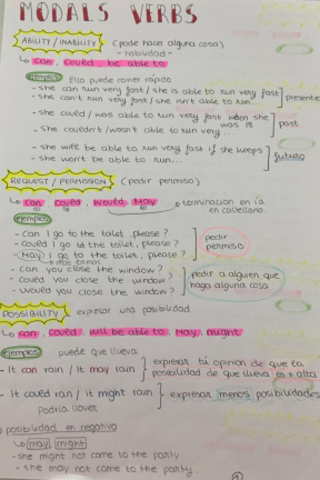 MODALS VERBS
ABILITY / INABILITY (poder hacer alguna cosa)
- habilidad -
↳ can, could, be able to
ejemplos Ella puede correr rápido
- she can run very fast / she is able to run very fast
- she can't run very fast / she isn't able to run...
] presente
- she could / was able to run very fast when she was 18
- She couldn't / wasn't able to run very...
] past
- she will be able to run very fast if she keeps
- she won't be able to run...
] futuro
REQUEST / PERMISSION (pedir permiso)
↳ can, could, would, May → terminacion en ía en castellano.
ejemplos
- Can I go to the toilet, please?
- Could I go to the toilet, please?
- May I go to the toilet, please?
→ más formal
] pedir permiso
- Can you close the window?
- Could you close the window?
- Would you close the window?
] pedir a alguien que haga alguna cosa
POSSIBILITY expresar una posibilidad
↳ can, could, will be able to, May, might
ejemplos puede que llueva
- It can rain / It may rain } expresar tú opinion de que la posibilidad de que llueva es + alta
- It could rain / it might rain } expresar menos posibilidades
podría llover
posibilidad en negativo
↳ may, might
- she might not come to the party
- she may not come to the party.